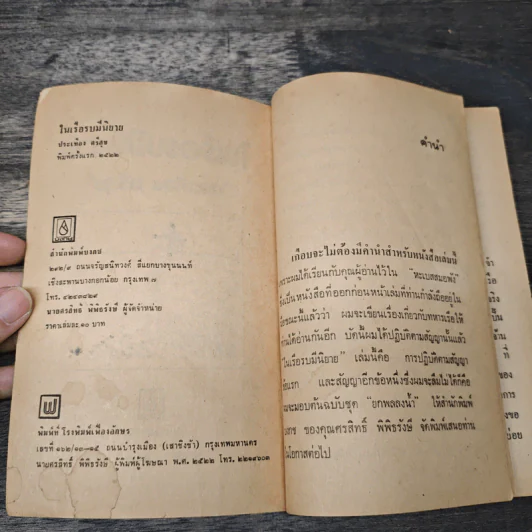 ในเรือรบมีนิยาย
ประเทือง ศรีสุข
พิมพ์ครั้งแรก ๒๕๒๒
สำนักพิมพ์บงลม
๒๙๒/๙ ถนนจรัญสนิทวงศ์ สี่แยกบางขุนนนท์
เชิงสะพานบางกอกน้อย กรุงเทพ ๗
โทร. ๔๒๔๓๔๒๙
นายศรสิทธิ์ พิพิธรังษี ผู้จัดจำหน่าย
ราคาเล่มละ ๑๐ บาท
พิมพ์ที่ โรงพิมพ์เฟื่องอักษร
เลขที่ ๑๖๒/๑๐-๑๕ ถนนบำรุงเมือง (เสาชิงช้า) กรุงเทพมหานคร
นายศรสิทธิ์ พิพิธรังษี ผู้พิมพ์ผู้โฆษณา พ.ศ. ๒๕๒๒ โทร. ๒๒๑๙๖๐๓
คำนำ
เกือบจะไม่ต้องมีคำนำสำหรับหนังสือเล่มนี้
เพราะผมได้เรียนกับคุณผู้อ่านไว้ใน "ทะเบสสมอพัง"
ซึ่งเป็นหนังสือที่ออกก่อนหน้าเล่มที่ท่านกำลังถืออยู่ใน
ขณะนี้แล้วว่า ผมจะเขียนเรื่องเกี่ยวกับทหารเรือให้
ท่านได้อ่านกันอีก บัดนี้ผมได้ปฏิบัติตามสัญญานั้นแล้ว
"ในเรือรบมีนิยาย" เล่มนี้คือ การปฏิบัติตามสัญญา
ข้อแรก และสัญญาอีกข้อหนึ่งซึ่งผมจะลืมไม่ได้ก็คือ
จะมอบต้นฉบับชุด "ยกพลองน้ำ" ให้สำนักพิมพ์
ของคุณศรสิทธิ์ พิพิธรังษี จัดพิมพ์เสนอท่าน
ในโอกาสต่อไป